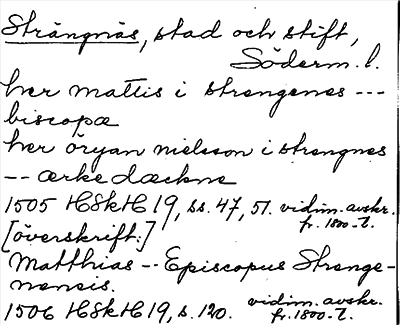 Strängnäs, stad och stift,
Söderm. l.
her mattis i strengenes ---
biscopæ
her öryan nielsson i strengnes
-- ærkedæckne
1505 HSkH 19, ss. 47, 51. vidim. avskr.
fr. 1800-t.
[överskrift:]
Matthias -- Episcopus Strenge-
nensis.
1506 HSkH 19, s. 120. vidim. avskr.
fr. 1800-t.